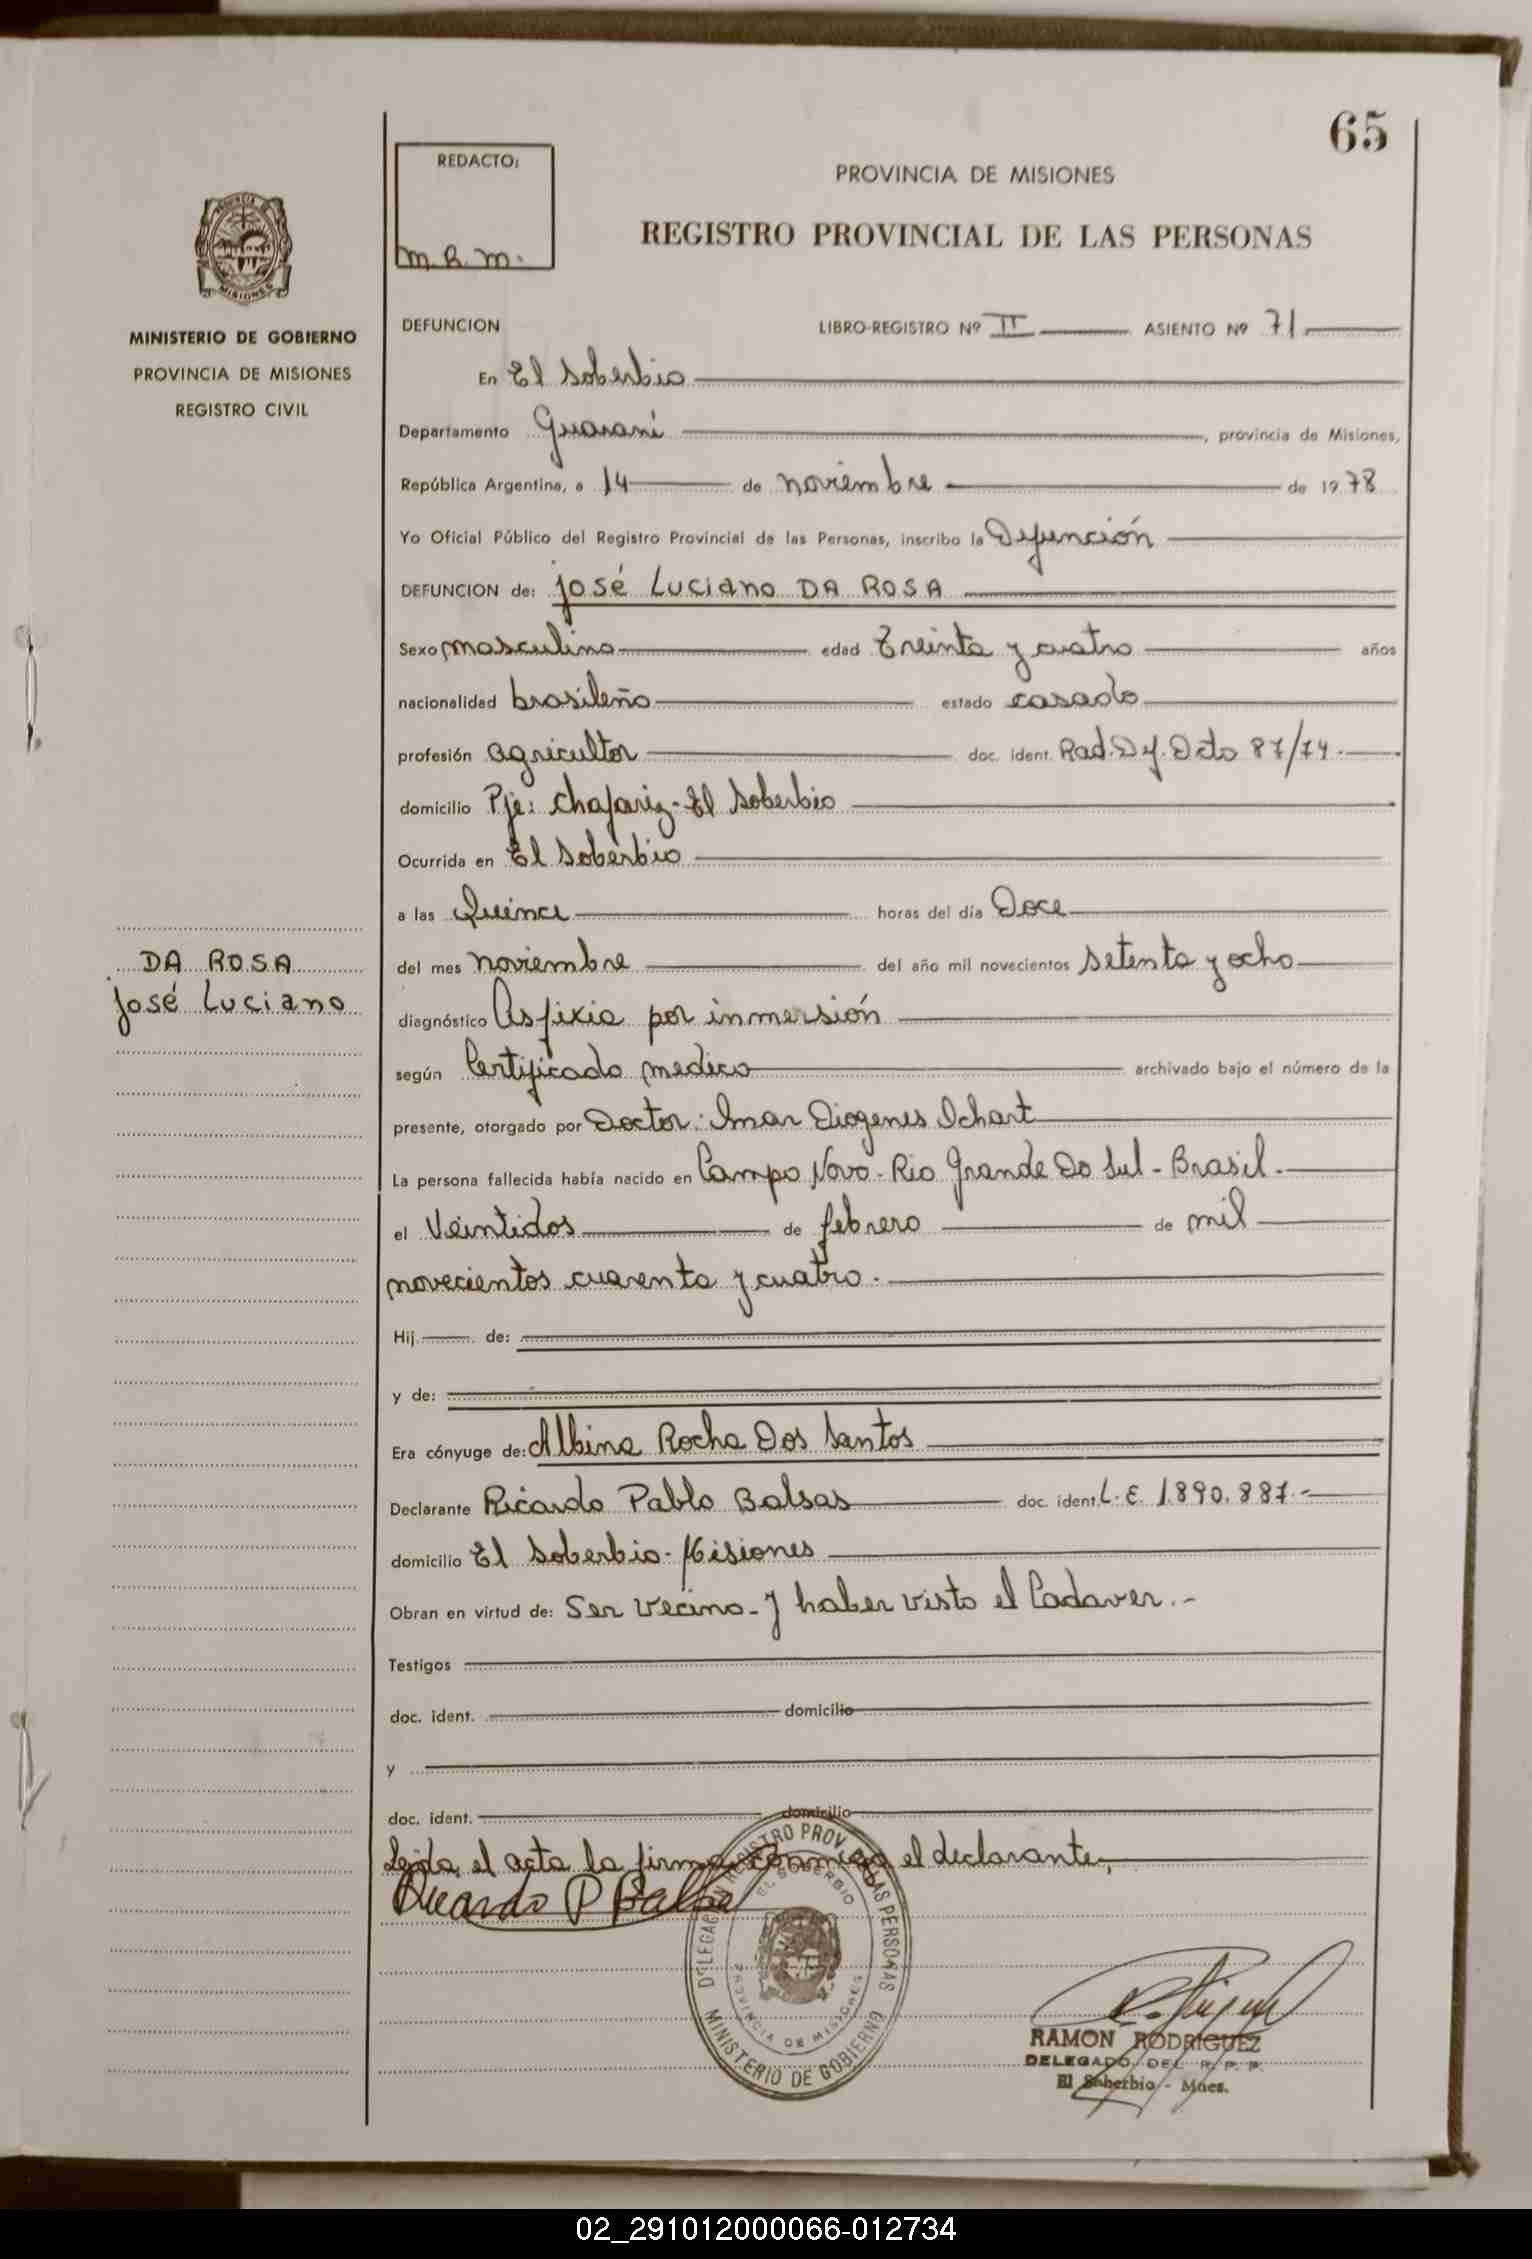 65
REDACTO:
m. R. m.
PROVINCIA DE MISIONES
REGISTRO PROVINCIAL DE LAS PERSONAS
PROVINCIA DE
MISIONES
MINISTERIO DE GOBIERNO
PROVINCIA DE MISIONES
REGISTRO CIVIL
DEFUNCION LIBRO-REGISTRO Nº II ASIENTO Nº 71
En El Soberbio
Departamento Guaraní, provincia de Misiones,
República Argentina, a 14 de noviembre de 1978
Yo Oficial Público del Registro Provincial de las Personas, inscribo la Defunción
DEFUNCION de: José Luciano DA ROSA
Sexo masculino edad Treinta y cuatro años
nacionalidad brasileño estado casado
profesión agricultor doc. ident. Rad. Df. Dcto 87/74.
domicilio Pje: Chafariz - El Soberbio
Ocurrida en El Soberbio
a las Quince horas del día Doce
DA ROSA
José Luciano
del mes noviembre del año mil novecientos setenta y ocho
diagnóstico Asfixia por inmersión
según Certificado medico archivado bajo el número de la
presente, otorgado por Doctor: Imar Diogenes Ichart
La persona fallecida había nacido en Campo Novo - Rio Grande Do Sul - Brasil.-
el Veintidos de febrero de mil
novecientos cuarenta y cuatro.
Hij de:
y de:
Era cónyuge de: Albina Rocha Dos Santos
Declarante Ricardo Pablo Balsas doc. ident. L. E. 1.890.887.-
domicilio El Soberbio - Misiones
Obran en virtud de: Ser vecino - y haber visto el Cadaver.-
Testigos
doc. ident. domicilio
y
doc. ident. domicilio
Leída el acta la firma conmigo el declarante,
Ricardo P Balsas
DELEGACION REGISTRO PROV. DE LAS PERSONAS
EL SOBERBIO
PROVINCIA DE MISIONES
MINISTERIO DE GOBIERNO
RAMON RODRIGUEZ
DELEGADO DEL R. P. P.
El Soberbio - Mnes.
02_291012000066-012734